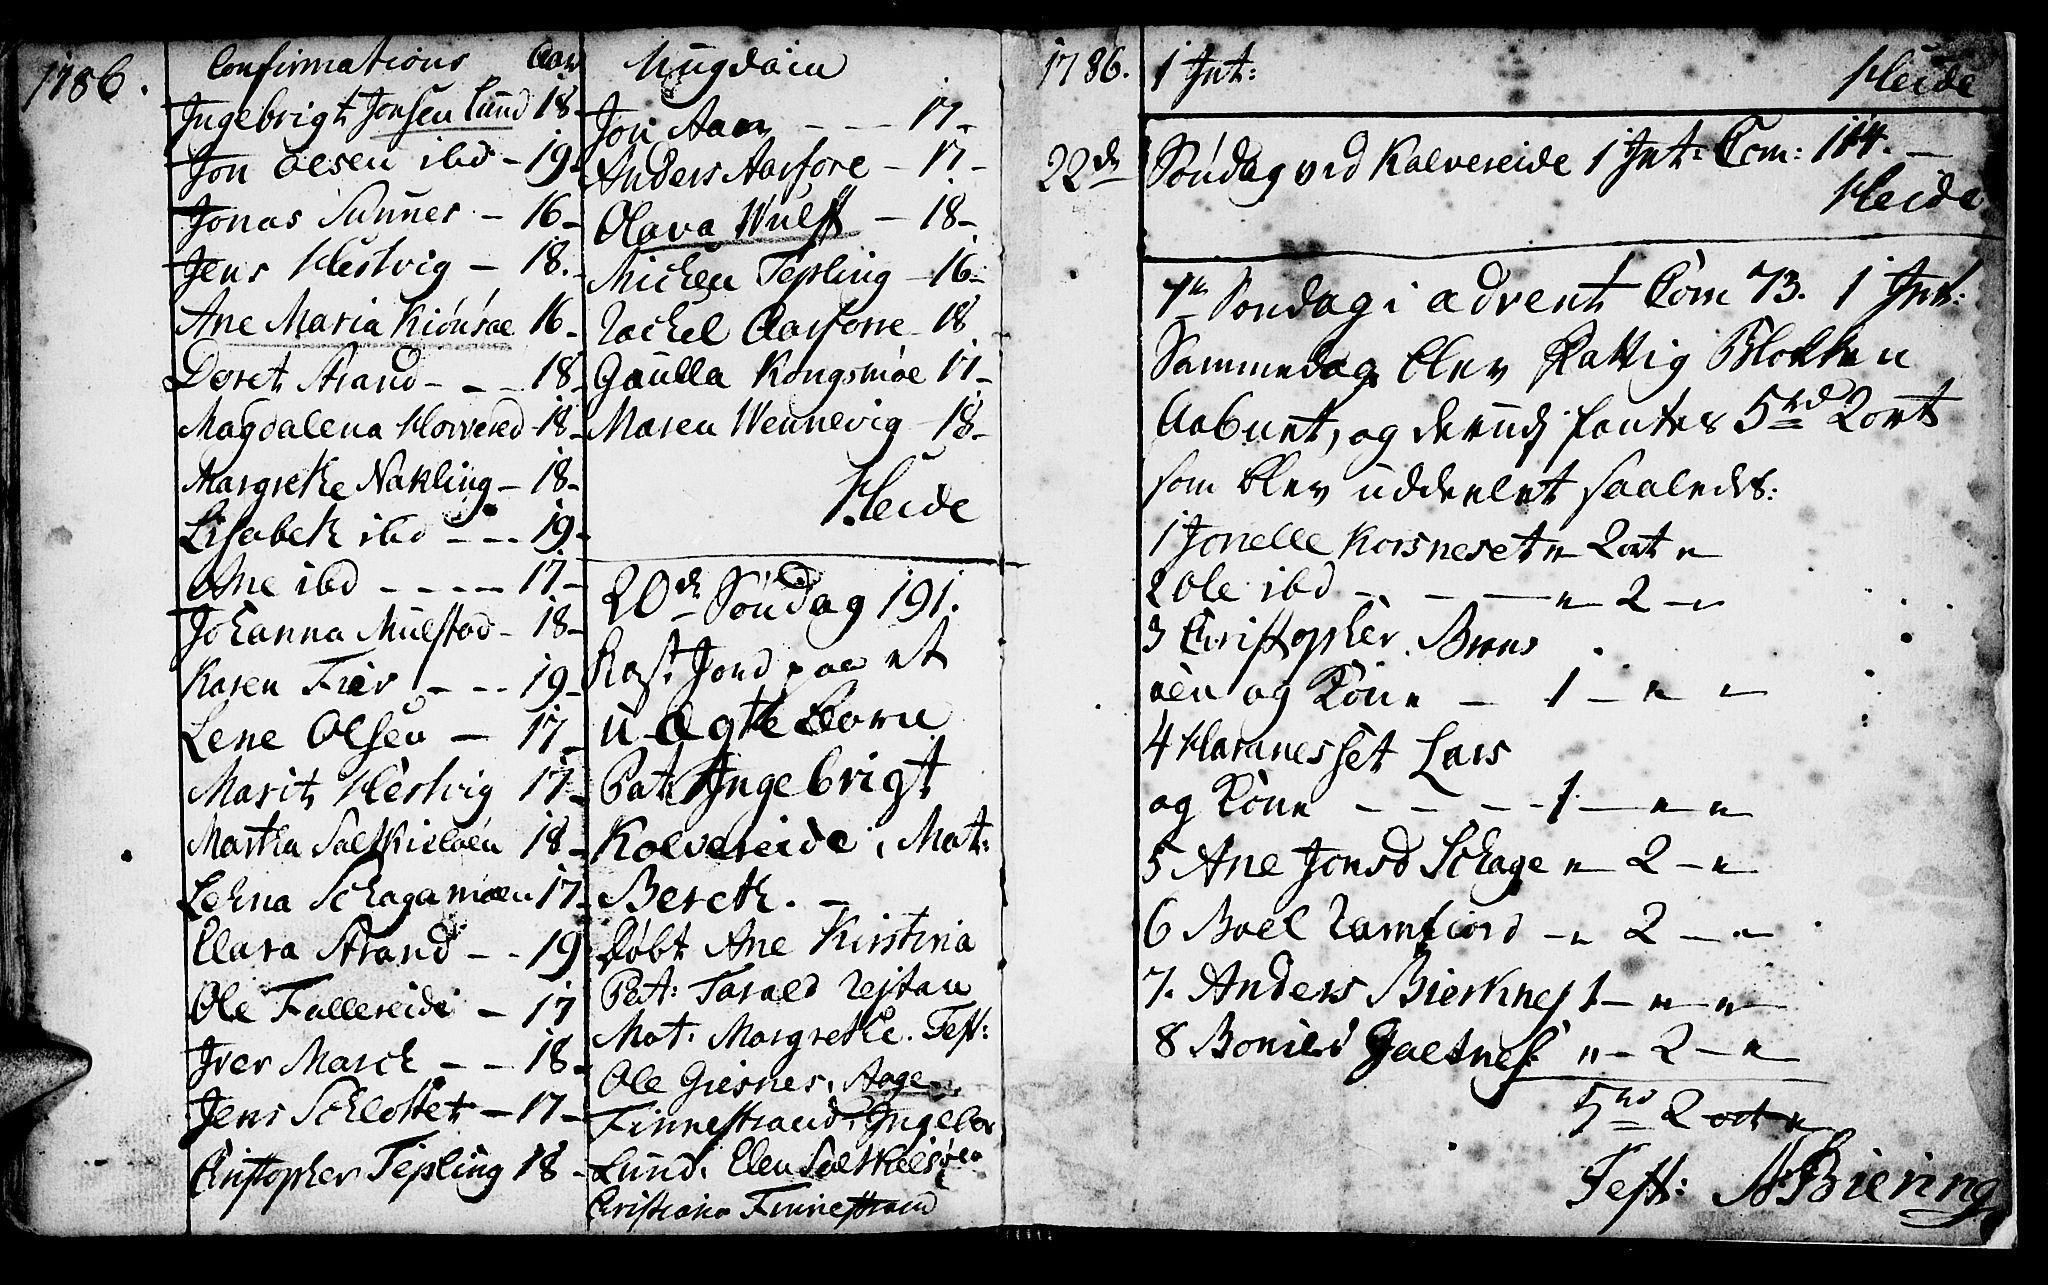 1786.
Confirmations Aar
Ingebrigt Jonsen Lund 18-
Jon Olsen ibd - 19-
Jonas Sunnes - 16-
Jens Hestvig - 18.-
Ane Maria Kiönsöe 16-
Doret Strand - - - 18-
Magdalena Horvered 18-
Margrethe Nakling - 18-
Lisabeth ibd - - - 19-
Ane ibd - - - - - 17-
Johanna Mulstad - 18-
Karen Fier - - - 19-
Lene Olsen - 17-
Marit Hestvig 17-
Martha Saltkieløen 18-
Lehna Schagamoen 17-
Clara Strand - - 19
Ole Fallereide - 17
Iver March - - 18-
Jens Schlottet - 17-
Christopher Tepling 18-
Ungdom
Jon Aan - - - 17-
Anders Aarfore - 17-
Olava Wulff - 18-
Michen Tepling - 16-
Rachel Aarforre - 18
Gunilla Kongsmoe 17-
Maren Wennevig - 18-
Heide
20de Söndag 191.
Kast Jord paa et
uægte Barn
Pat: Ingebrigt
Kolvereide, Mat:
Bereth. -
Døbt Ane Kirstina
Pat: Tarald
Mat: Margrethe. Test:
Ole Giesnes, Aage
Finnestrand, Ingebor
Lund. Elen Saltkieløen
Christiana Finnestrand
1786. 1 Int:
Heide
22de Söndag ved Kolvereide 1 Int: Com: 114. -
Heide
1te Søndag i advent Com 73. 1 Int:
Sammedag blev Fattig Blokken
Aabnet, og derudj fantes 5rd 2 ort
som blev uddeelet saaledes:
1 Jonelle Korsneset " 2 ort "
2 Ole ibd - - - " - 2 - "
3 Christopher Brens
øen og Kone - 1 - " "
4 Haranesset Lars
og Kone - - - - 1 - " "
5 Ane Jonsd Schage " - 2 - "
6 Boel Ramfiord - " 2 - " -
7. Anders Bierknes 1 - " - " -
8 Bonild Galtnes " - 2 - " -
5rd 2 ort "
Test: NBiering